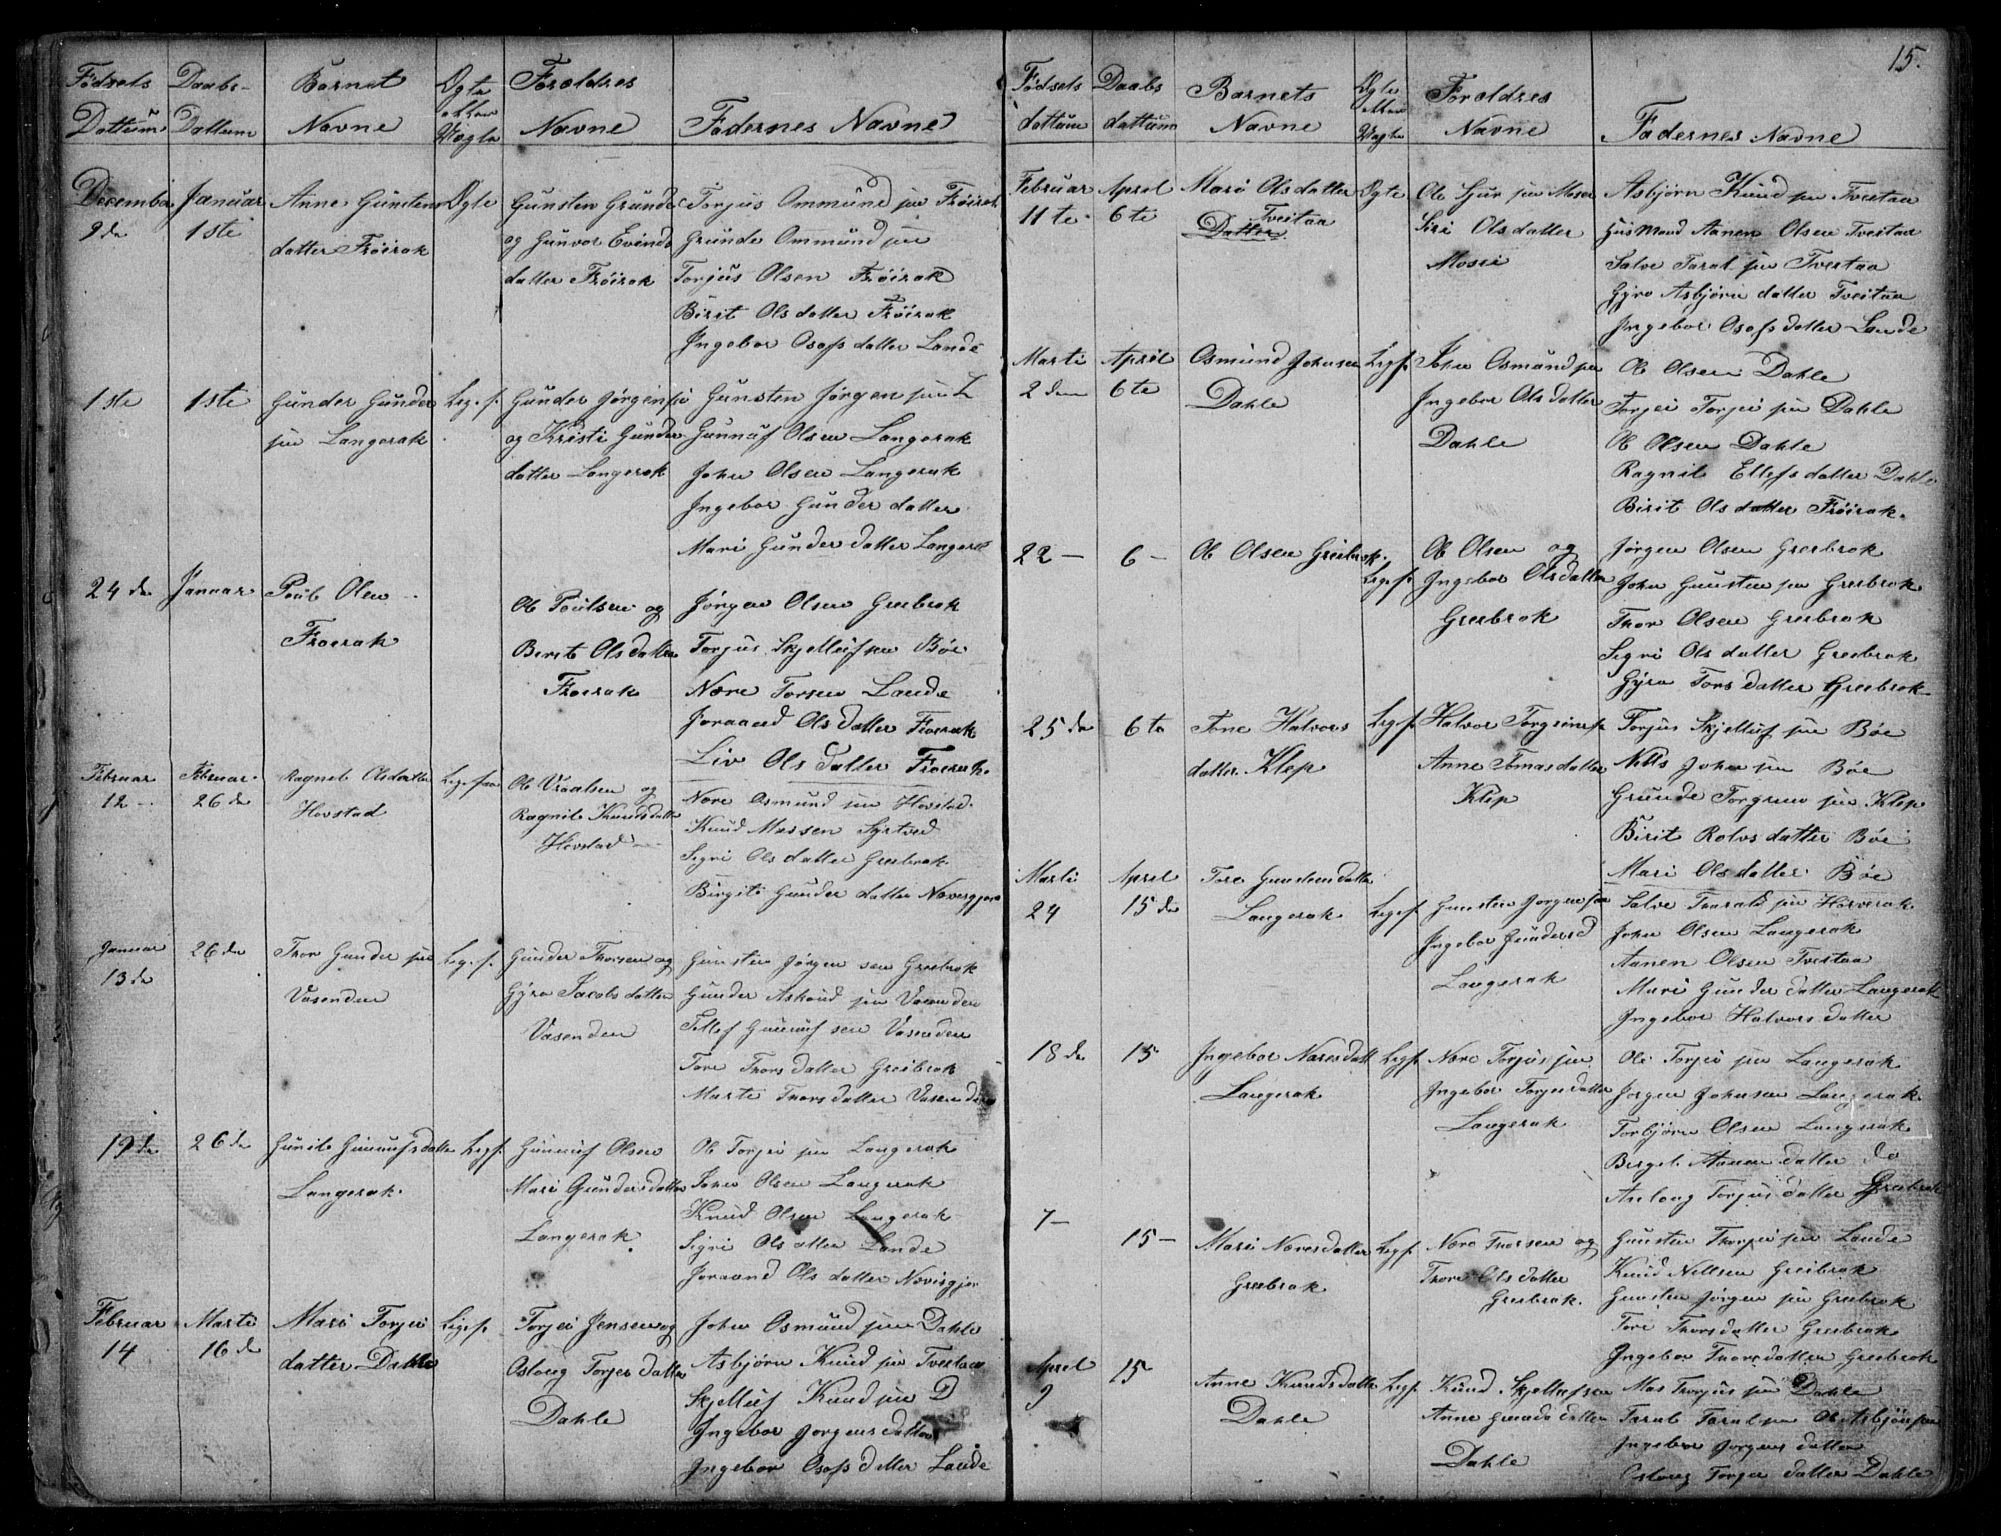 15.
Fødsels Dattum
Daabs- Dattum
Barnet Navne
Ægte eller Uægte
Foreldres Navne
Fadernes Navne
December 9de
Januar 1ste
Anne Gunstens
datter Frøirak
Ægte
Gunsten Grunde
og Gunvor Evinds
datter Frøirak
Torjus Ommund søn Frøirak
Grunde Ommund søn
Torjus Olsen Frøirak
Birit Olsdatter Frøirak
Ingebor Osofs datter Lande
1ste
1ste
Gunder Gunder
søn Langerak
Lig. s.
Gunder Jørgen sø
og Kristi Gunder
datter Langerak
Gunsten Jørgen søn L
Gunnuf Olsen Langerak
John Olsen Langerak
Ingebor Gunder datter
Mari Gunder datter Langerak
24de
Januar
Poul Olen
Froerak
Ole Poulsen og
Berit Olsdatter
Froerak
Jørgen Olsen Greibrok
Torjus Skjellufsen Bøe
Nære Torsen Lande
Joraand Olsdatter Froerak
Liv Olsdatter Froerak
Februar 12
Februar 26de
Ragnil Olsdatter
Hovstad
Lige saa
Ole Vraalsen og
Ragnil Knudsdatter
Hovstad
Nære Osmund søn Hovstad
Knud Massen Syrtved
Sigri Olsdatter Greibrok
Birgit Gunder datter Neversgjera
Januar 13de
26de
Thor Gunder søn
Vasenden
Lig. s.
Gunder Thorsen og
Gyro Jacobs datter
Vasenden
Gunsten Jørgen sen Greibrok
Gunder Aslaud søn Vasenden
Tellef Gunnuf sen Vasenden
Tore Thors datter Greibrok
Marte Thors datter Vasenden
19de
26de
Gunild Gunnufsdatter
Langerak
Ligs.
Gunnuf Olsen
Mari Gundersdatter
Langerak
Ole Torjei søn Langerak
John Olsen Langerak
Knud Olsen Langerak
Sigri Ols datter Lande
Joraand Ols datter Nævisgjer
Februar 14
Marti 16de
Mari Torjei
datter Dahle
Liges.
Torjei Jensen og
Oslaug Torjes datter
Dahle
John Osmund søn Dahle
Asbjørn Knud søn Tvestaa
Skjelluf Knud søn D
Ingebor Jørgensdatter
Ingebor Osofs datter Lande
Fødsels dattum
Daabs dattum
Barnets Navne
Ægte eller Uægte
Foreldres Navne
Fadernes Navne
Februar 11te
April 6te
Mari Olsdatter
Tveitaa
Datter
Ægte
Ole Gjur søn Moser
Siri Olsdatter
Mosei
Asbjørn Knud søn Tvestaa
Husmand Aanen Olsen Tvestaa
Salve Taral søn Tvestaa
Gyro Asbjørn datter Tveitaa
Ingebor Osofs datter Lande
Marti 2den
April 6te
Osmund Johnsen
Dahle
Ligs.
John Osmund søn
Ingebor Olsdatter
Dahle
Ole Olsen Dahle
Torjei Torjei søn Dahle
Ole Olsen Dahle
Ragnil Ellefs datter Dahle
Birit Olsdatter Frøirak
22 —
6 —
Ole Olsen Greibrok
Ligs.
Ole Olsen og
Ingebor Olsdatter
Greibrok
Jørgen Olsen Greibrok
John Gunsten søn Greibrok
Thor Olsen Greibrok
Sigri Ols datter Greibrok
Gyro Tors datter Greibrok
25de
6te
Tone Halvors
datter Klep
Ligs.
Halvor Torgrims
Anne Tomasdatter
Klep
Torjus Skjelluf søn Bøe
Nills John søn Bøe
Grunde Torgrim søn Klep
Birit Rolvs datter Bøe
Mari Olsdatter Bøe
Marti 24
April 15de
Tore Gunstensdatter
Langerak
Ligs.
Gunsten Jørgensøn
Ingebor Gunders d
Langerak
Salve Taralds søn Haaverak
John Olsen Langerak
Aanen Olsen Tvestaa
Mari Gunder datter Langerak
Ingebor Halvors datter
18de
15
Ingebor Næresdatt
Langerak
Ligs.
Nære Torjus søn
Ingebor Torjusdatter
Langerak
Ole Torjei søn Langerak
Jørgen Johnsen Langerak
Torbjørn Olsen Langerak
Birgit Aanen datter do
Aslaug Torjus datter Greibrok
7 —
15 —
Mari Næresdatter
Greibrok
Ligs.
Nære Thorsen og
Thore Olsdatter
Greibrok
Gunsten Thorjei søn Lande
Knud Nillsen Greibrok
Gunsten Jørgen søn Greibrok
Tore Thorsdatter Greibrok
Ingebor Thorsdatter Greibrok
April 9
15
Anne Knudsdatter
Dahle
Ligs.
Knud Skjellufsen
Anne Gunda datter
Dahle
Mas Thorjus søn Dahle
Tarul Tarulsøn Ole Asbjønsøn
Ingebor Jørgens datter
Oslaug Torjer datter Dahle